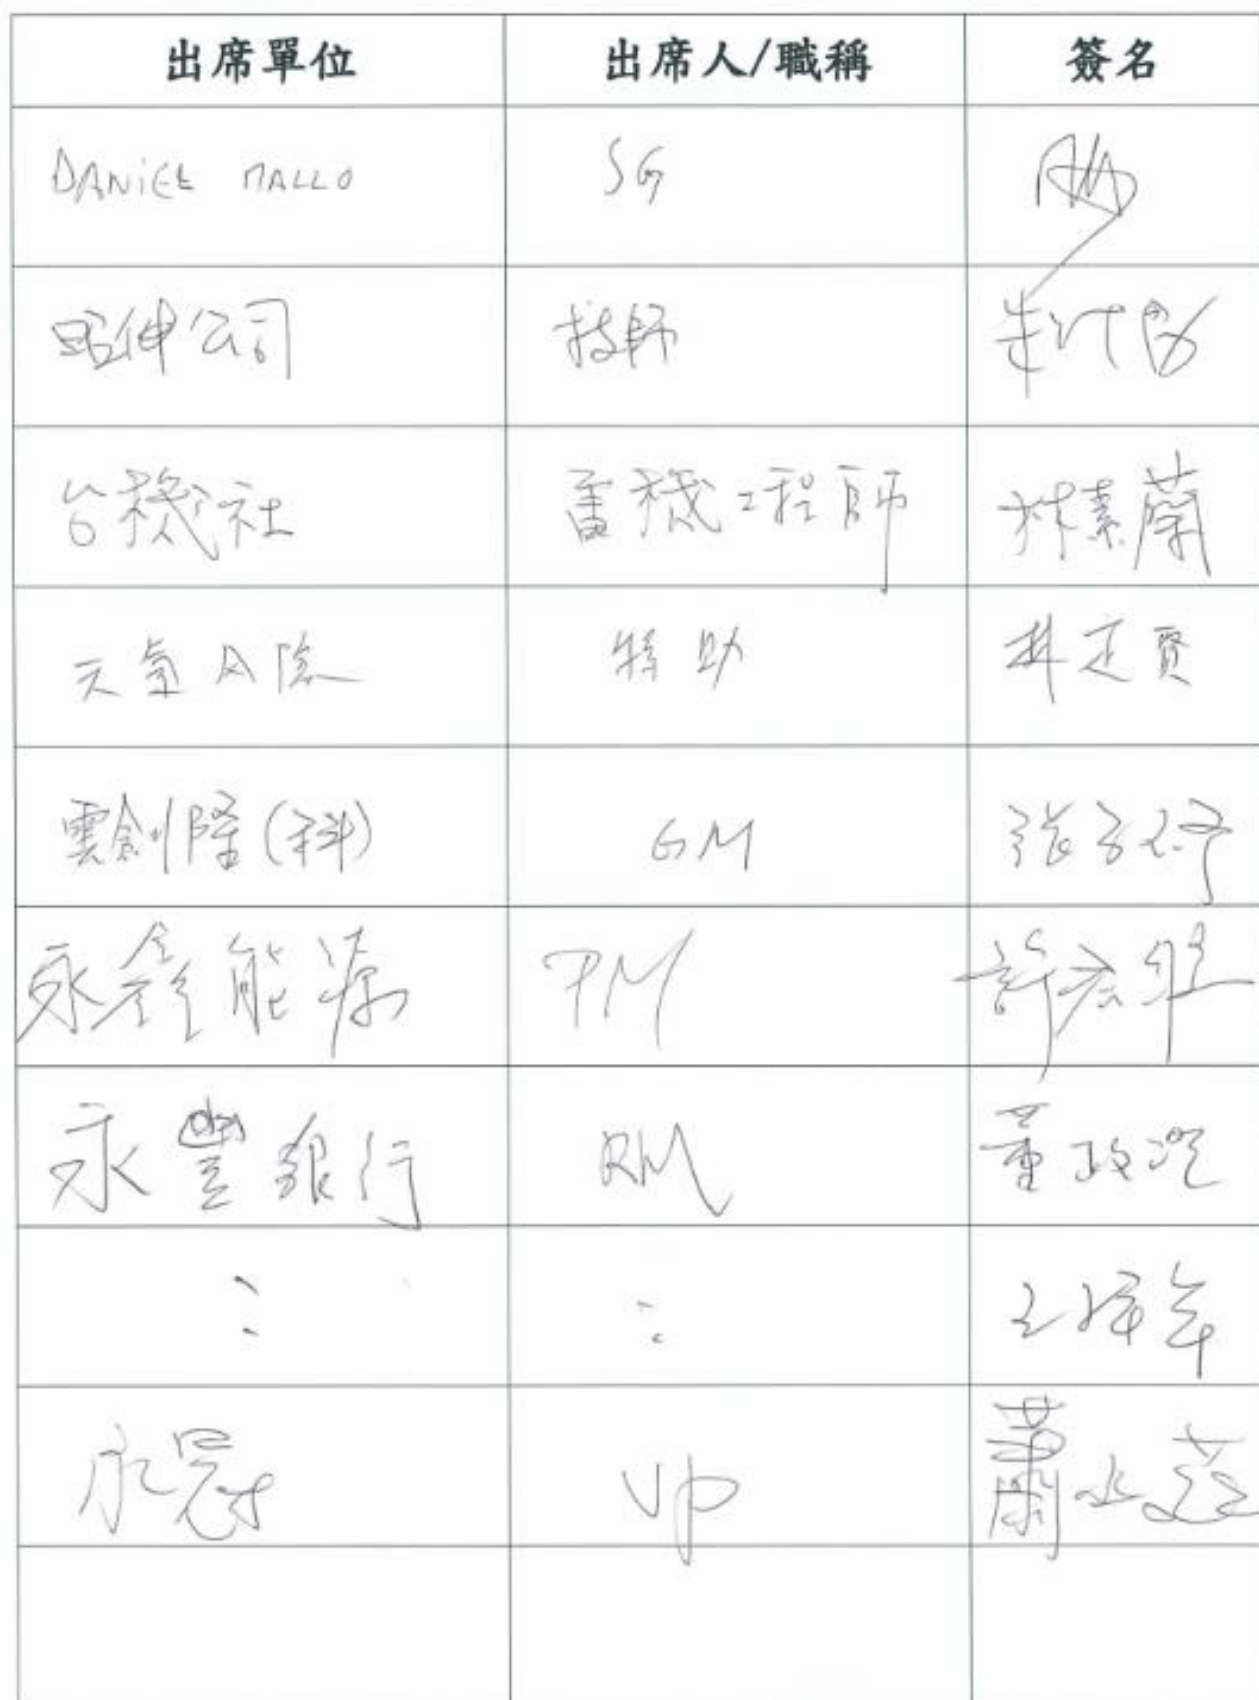 出席單位 出席人/職稱 簽名
DANIEL MALLO SG
昭伸公司 技師
台機社 電機工程師 林素蘭
元氣 特助 林定賢
雲創隆(科) GM 張
永鑫能源 PM 許宏
永豐銀行 RM 董政
： ： 年
永冠 VP 蕭